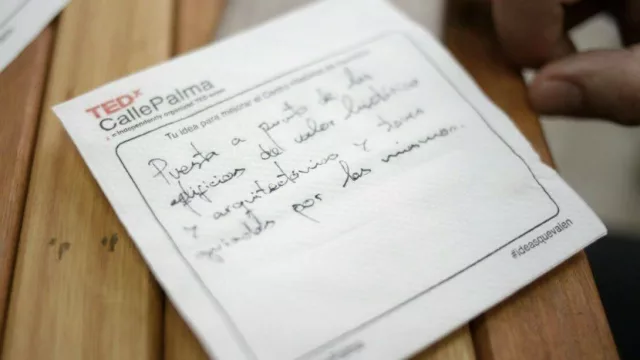 TEDx
CallePalma
x = independently organized TED event
Tu idea para mejorar el Centro Histórico de
Puesta a punto de los
edificios del valor histórico
y arquitectónico y tours
guiados por los mismos.
#ideasquevalen